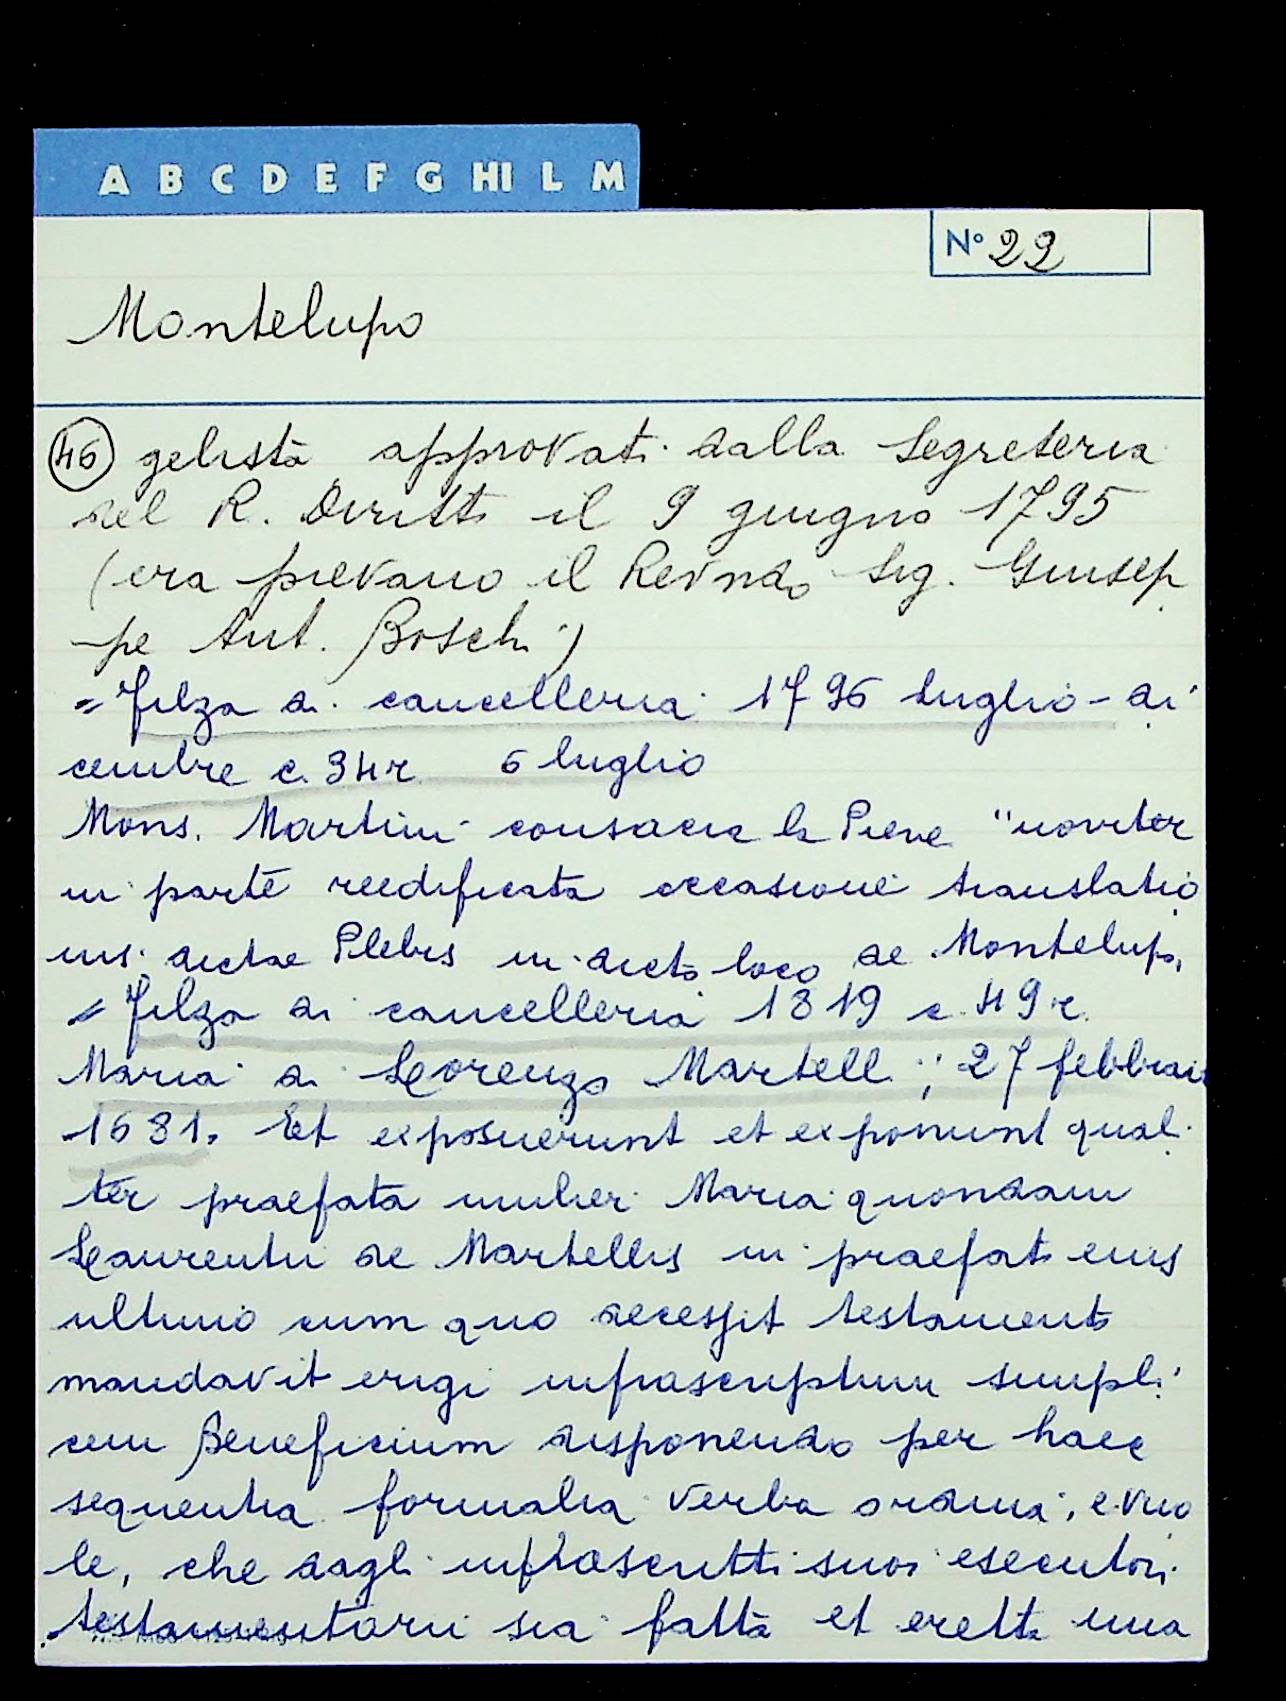 A B C D E F G HI L M
N° 22
Montelupo
46 gelista approvati dalla Segreteria
del R. Diritto il 9 giugno 1795
(era pievano il Revndo Sig. Giusep
pe Ant. Boschi)
= Filza di cancelleria 1796 luglio - di
cembre c. 34r 6 luglio
Mons. Martini consacra la Pieve "noviter
in parte reedificata occasione translatio
nis dictae Plebis in dicto loco de Montelupo,
= Filza di cancelleria 1819 c. 49r.
Maria di Lorenzo Martelli; 27 febbraio
1681. Et exposuerunt et exponunt quali
ter praefata mulier Maria quondam
Laurentii de Martellis in praefato eius
ultimo cum quo decessit testamento
mandavit erigi infrascriptum simpli
cem Beneficium disponendo per haec
sequentia formalia verba ordina, e vuo
le, che dagli infrascritti suoi esecutori
testamentarii sia fatta et eretta una